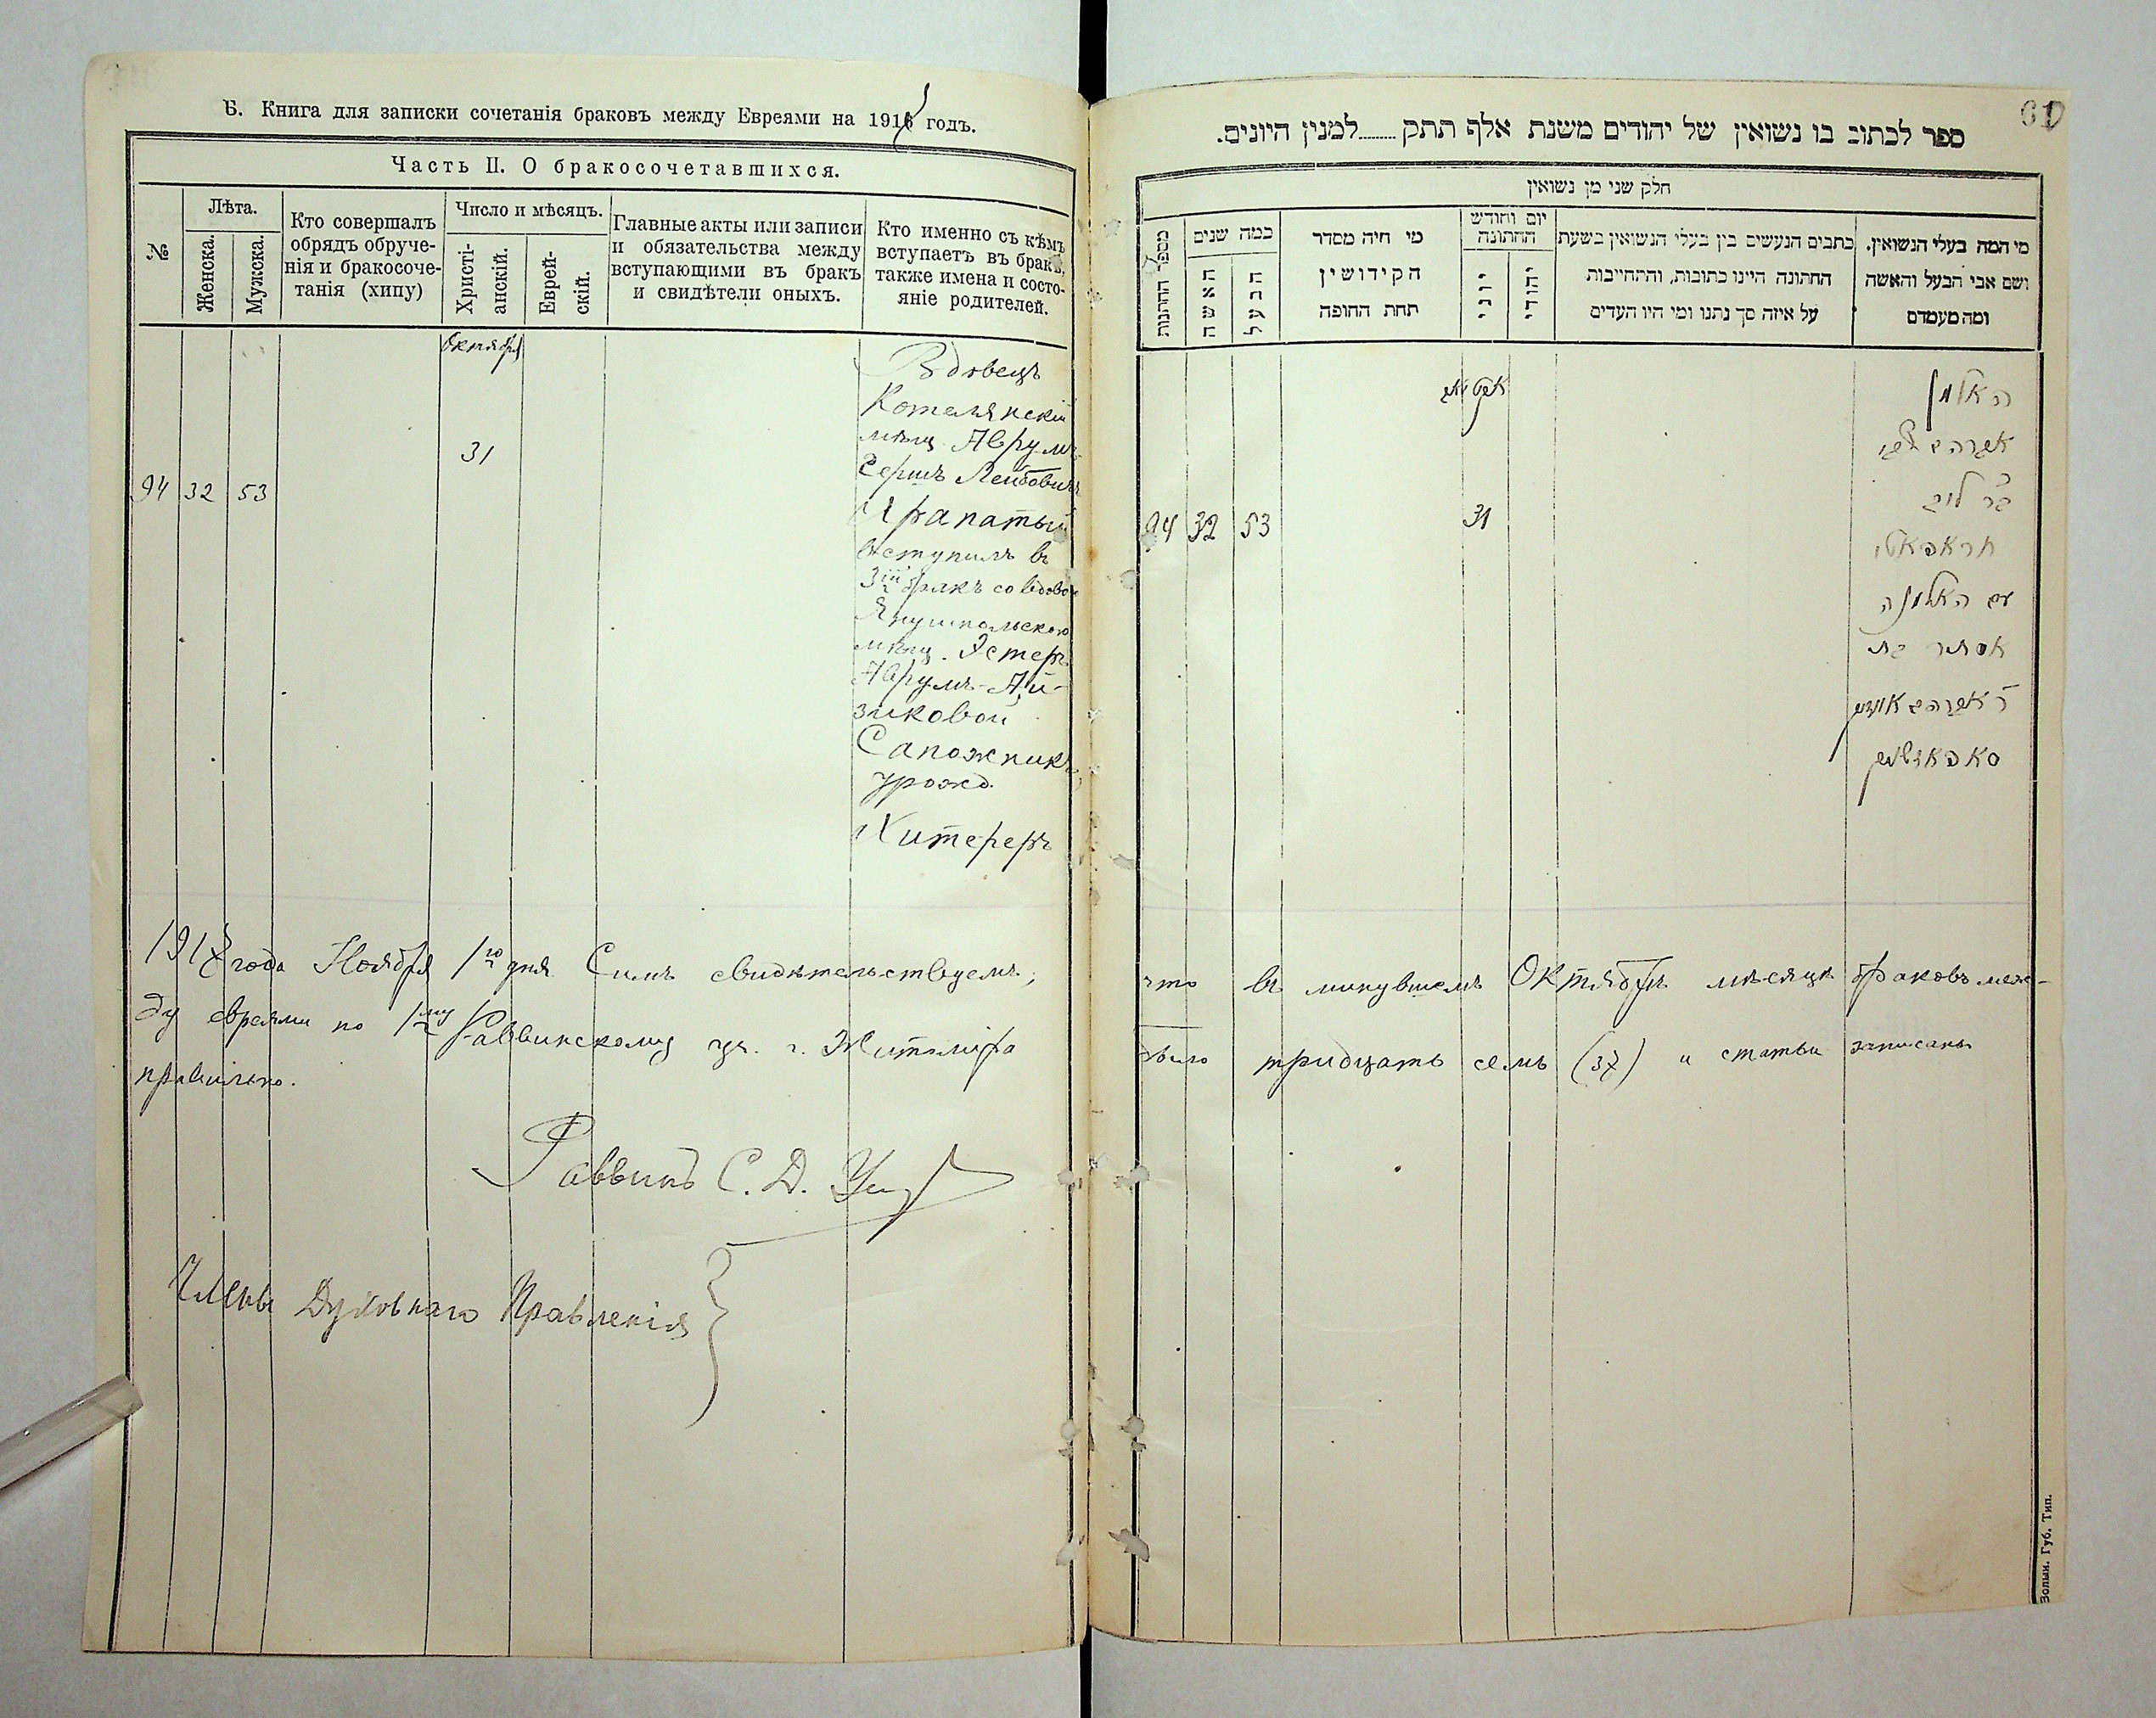 Б. Книга для записки сочетанія браковъ между Евреями на 191 годъ.
Часть II. О бракосочетавшихся.
№
Лѣта.
Женска.
Мужска.
Кто совершалъ
обрядъ обруче-
нія и бракосоче-
танія (хипу)
Число и мѣсяцъ.
Христі-
анскій.
Еврей-
скій.
Главные акты или записи
и обязательства между
вступающими въ бракъ
и свидѣтели оныхъ.
Кто именно съ кѣмъ
вступаетъ въ бракъ,
также имена и состо-
яніе родителей.
Октября
94 32 53
31
Вдовецъ
Котелянскій
мѣщ. Аврумъ
Гершъ Лейбовичъ
Вступилъ въ
3й бракъ со вдовою
Янушпольскою
мѣщ. Эстеръ
Аврумъ-Ай-
зиковой
Сапожникъ
урожд.
Хитереръ
1917 года Ноября 1го дня Симъ свидѣтельствуемъ,
ду евреями по 1му Раввинскому уч. г. Житоміра
правильно.
Раввинъ С. Д.
Члены Духовнаго Правленія
61
ספר לכתוב בו נשואין של יהודים משנת אלף תתק........למנין היונים.
חלק שני מן נשואין
מספר החתונות
כמה שנים
האשה
הבעל
מי היה מסדר
הקידושין
תחת החופה
יום וחודש
החתונה
יוני
יהודי
כתבים הנעשים בין בעלי הנשואין בשעת
החתונה היינו כתובות, והתחייבות
על איזה סך נתנו ומי היו העדים
מי המה בעלי הנשואין.
ושם אבי הבעל והאשה
ומה מעמדם
94 32 53
31
האלמן
אברהם
בר ליב
עם האלמנה
אסתר בת
ר׳ אברהם אייזיק
סאפאזשניק
что въ минувшемъ Октябрѣ мѣсяцѣ браковъ меж-
было тридцать семь (37) и статьи записаны
Волын. Губ. Тип.